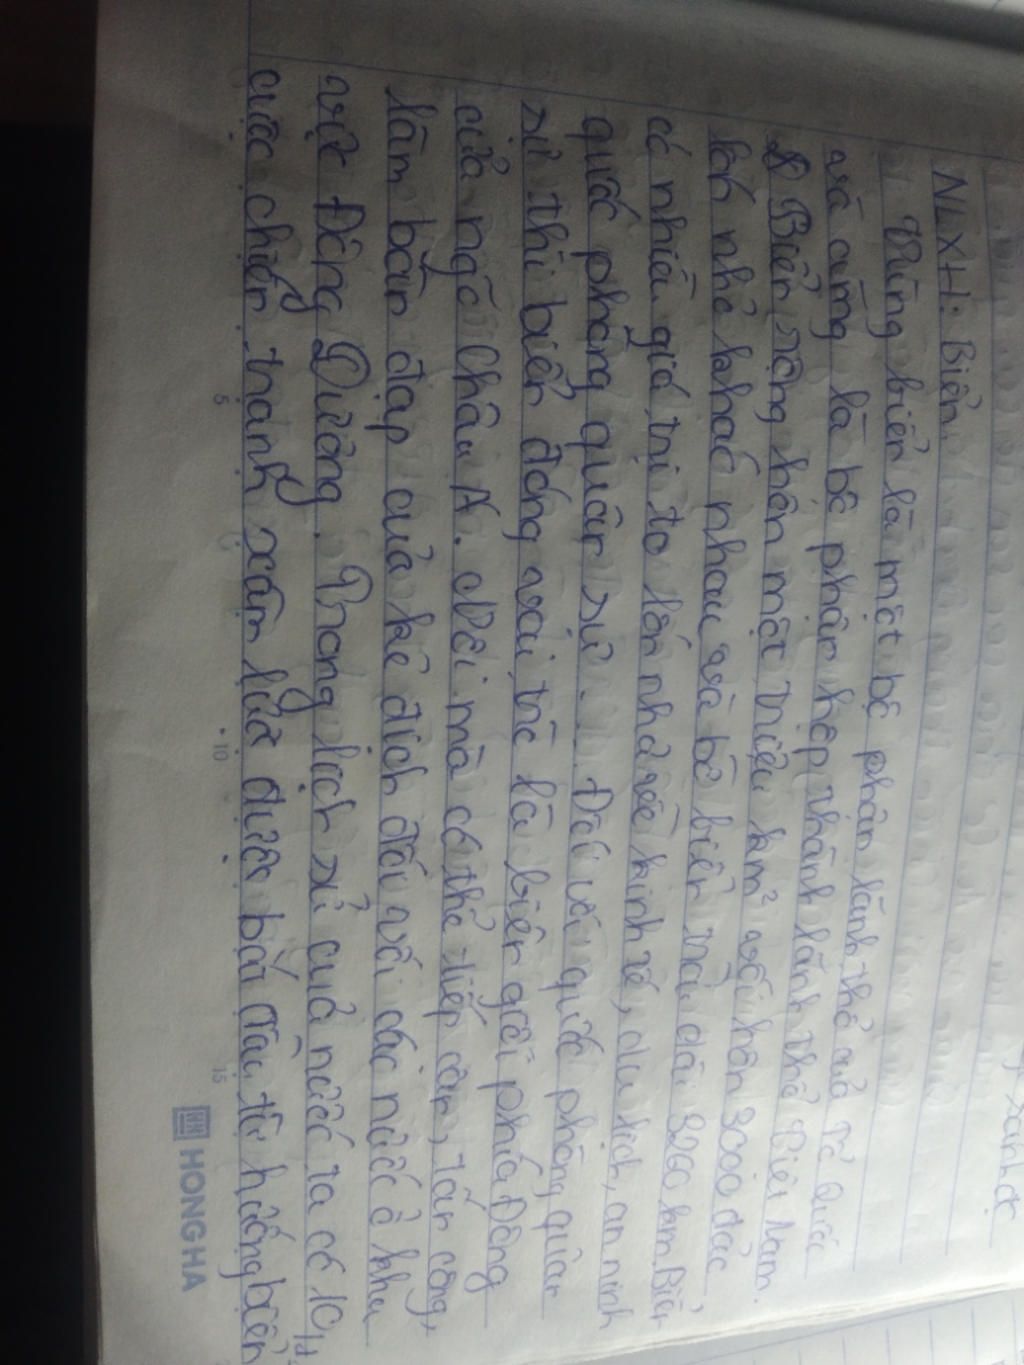 NLXH: Biển.
Vùng biển là một bộ phận lãnh thổ của Tổ Quốc
và cũng là bộ phận hợp thành lãnh thổ Việt Nam.
Biển rộng hơn một triệu km² với hơn 3000 đảo
lớn nhỏ khác nhau và bờ biển trải dài 3260 km. Biển
có nhiều giá trị to lớn như về kinh tế, du lịch, an ninh
quốc phòng quân sự... Đối với quốc phòng quân
sự thì biển đóng vai trò là biên giới phía Đông
cửa ngõ Châu Á. Nơi mà có thể tiếp cận, tấn công,
làm bàn đạp của kẻ địch đối với các nước ở khu
vực Đông Dương. Trong lịch sử của nước ta có 10
cuộc chiến tranh xâm lược được bắt đầu từ hướng biển
5
10
15
HONG HA